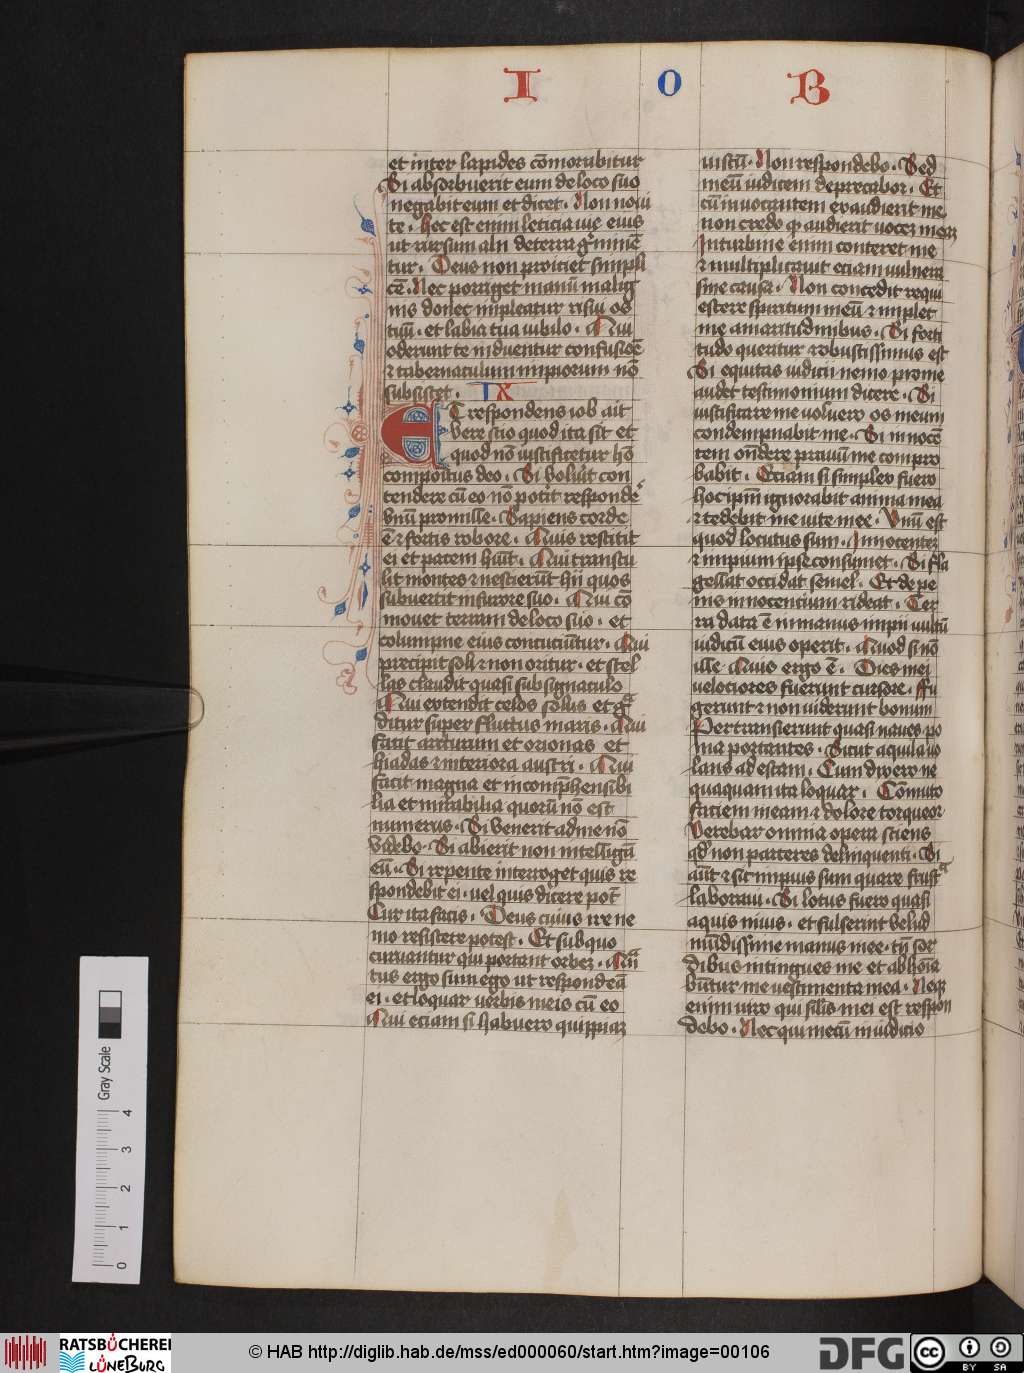 I O B
et inter lapides cōmorabitur
Si absorbuerit eum de loco suo
negabit eum et dicet . Non novi
te . Hoc est enim leticia vie eius
ut rursum alii de terra gͥminē
tur . Deus non proiciet simpli
cē . Nec porriget manū malig
nis donec impleatur risu os
tuū . et labia tua iubilo . Qui
oderunt te induentur confusiōe
⁊ tabernaculum impiorum nō
subsistet . IX
ET respondens iob ait
vere scio quod ita sit et
quod nō iustificetur hō
compoitus deo . Si volūit con
tendere cū eo nō potͥit respondeͬ
vnū pro mille . Sapiens corde
ē ⁊ fortis robore . Quis restitit
ei et pacem huīt . Qui transtu
lit montes ⁊ nescierūt hii quos
subvertit in furore suo . Qui cō
movet terram de loco suo . et
columpne eius concuciūtur . Qui
precipit soli ⁊ non oritur . et stel
las claudit quasi sub signaculo
Qui extendit celos solus et gͣ
ditur super fluctus maris . Qui
facit arcturum et orionas et
hiadas ⁊ interiora austri . Qui
facit magna et incomp̄hensibi
lia et mirabilia quorū nō est
numerus . Si venerit ad me nō
videbo . Si abierit non intelligā
eū . Si repente interroget quis re
spondebit ei . vel quis dicere pot̄
Cur ita facis . Deus cuius ire ne
mo resistere potest . Et sub quo
curvantur qui portant orbez . Qn̄
tus ergo sum ego ut respondeā
ei . et loquar verbis meis cū eo
Qui eciam si habuero quippiaz
iustū . Non respondebo . Sed
meū iudicem deprecabor . Et
cū invocantem exaudierit me
non credo ꝙ audierit vocez meaz
In turbine enim conteret me
⁊ multiplicavit eciam vulnera
sine causa . Non concedit requi
escere spiritum meū ⁊ implet
me amaritudinibus . Si forti
tudo queritur robustissimus est
Si equitas iudicii nemo pro me
audet testimonium dicere . Si
iustificare me voluero os meum
condempnabit me . Si innocē
tem on̄dere pravum me compro
babit . Eciam si simplex fuero
hoc ipm̄ ignorabit anima mea
⁊ tedebit me vite mee . Vnū est
quod locutus sum . Innocentez
⁊ impium ipse consumet . Si fla
gellat occidat semel . Et de pe
nis innocentium rideat . Ter
ra data ē in manus impii vultū
iudicū eius operit . Quod si nō
ille . Quis ergo ē . Dies mei
velociores fuerunt cursore . Fu
gerunt ⁊ non viderunt bonum
Pertransierunt quasi naves po
ma portantes . Sicut aquila vo
lans ad escam . Cum dixero ne
quaquam ita loquar . Cōmuto
faciem meam ⁊ dolore torqueor
Verebar omnia opera sciens
qd̓ non parceres delinquenti . Si
aūt ⁊ sic impius sum quare frustͣ
laboravi . Si lotus fuero quasi
aquis nivis . et fulserint velud
mūdissime manus mee . tn̄ sor
dibus intingues me et abhoīa
būtur me vestimenta mea . Neqz
enim viro qui silis mei est respon
debo . Nec qui mecū in iudicio
Gray Scale
0 1 2 3 4
RATSBÜCHEREI
LÜNEBURG
© HAB http://diglib.hab.de/mss/ed000060/start.htm?image=00106
DFG
cc BY SA